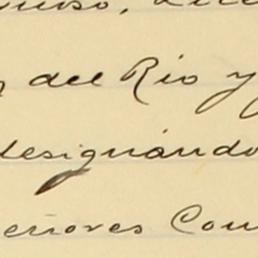 del Rio y
designando
eñores Con